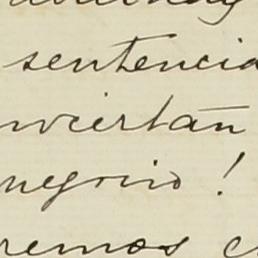 sentencia
nviertan
negrino!
remos e